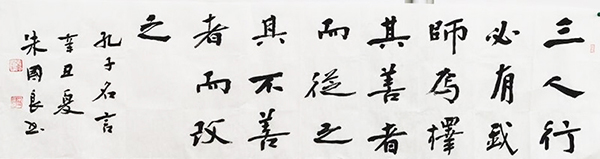 三人行
必有我
師焉擇
其善者
而從之
其不善
者而改
之
孔子名言
辛丑夏
朱國良书